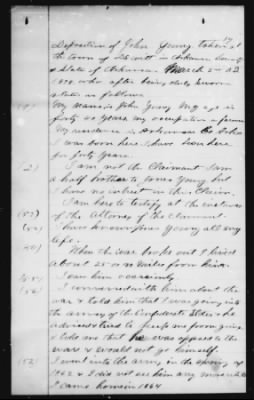 Deposition of John Young taken at
the town of DeWitt in Arkansas County
& State of Arkansas March 2nd A.D.
187 who after being duly sworn
states as follows
My name is John Young My age is
forty years my occupation a farmer
My residence is Arkansas Co Arks
I was born here I have been here
for forty years.
2) I am not the Claimant I am
a half brother to Jones Young but
I have no interest in this Claim.
I am here to testify at the instance
of the Attorney of the Claimant.
I have known Jones Young all my
life.
When the war broke out I lived
about 25 or 30 miles from him.
I saw him occasionly
I conversed with him about the
war & told him that I was going into
the army of the Confederate States & he
advised & tried to keep me from going
& told me that he was opposed to the
war & would not go himself.
I went into the army in the spring of
1862 & I did not see him any more until
I came home in 1864